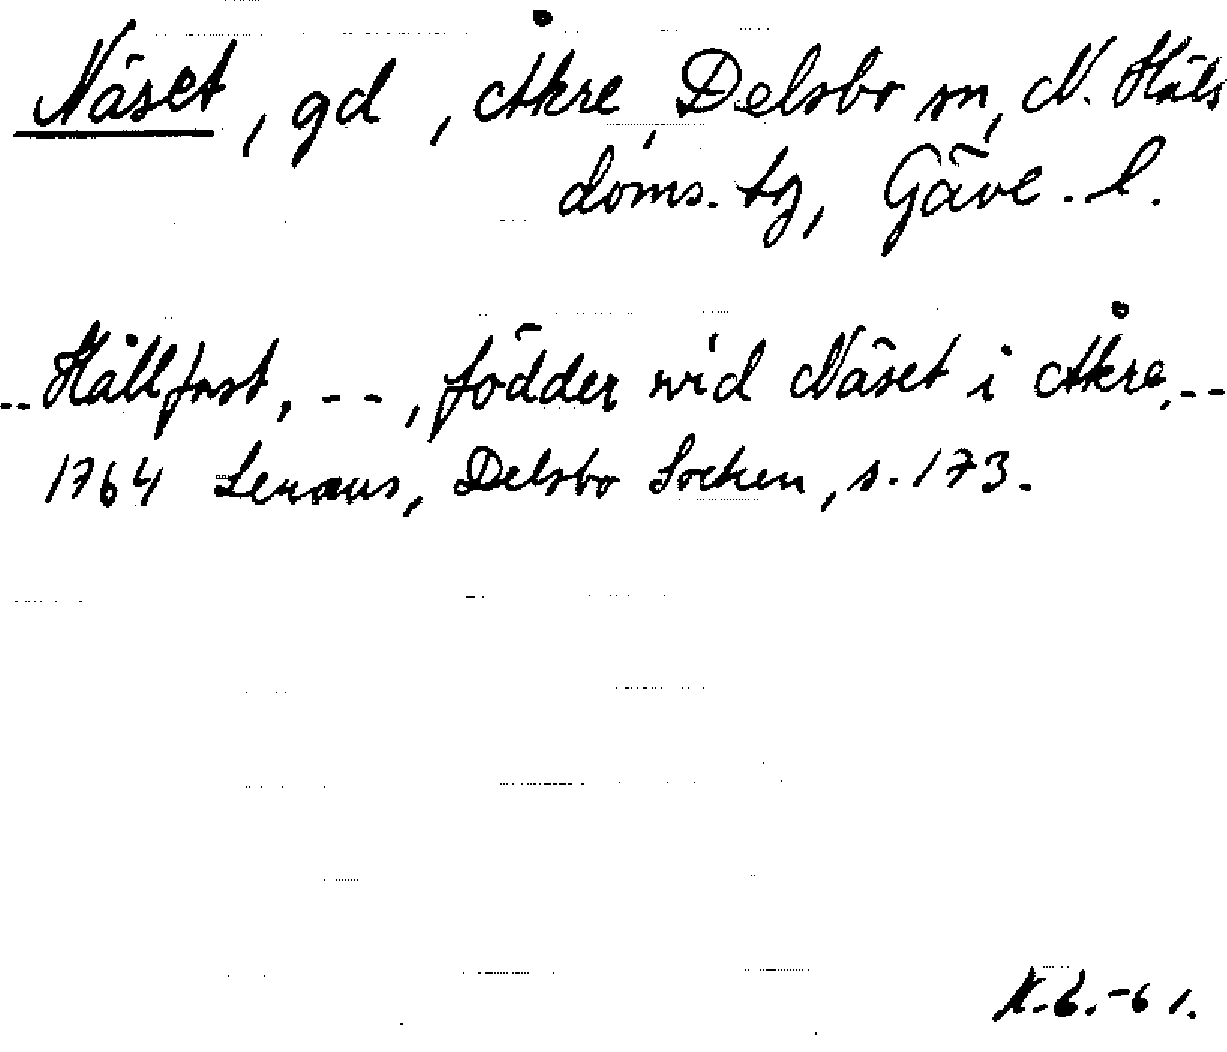 Näset, gd, Åkre, Delsbo sn, N. Häls
doms. tg, Gävl. l.
-- Hållfast, --, födder wid Näset i Åkre, --
1764 Lenæus, Delsbo Socken, s. 173.
-61.